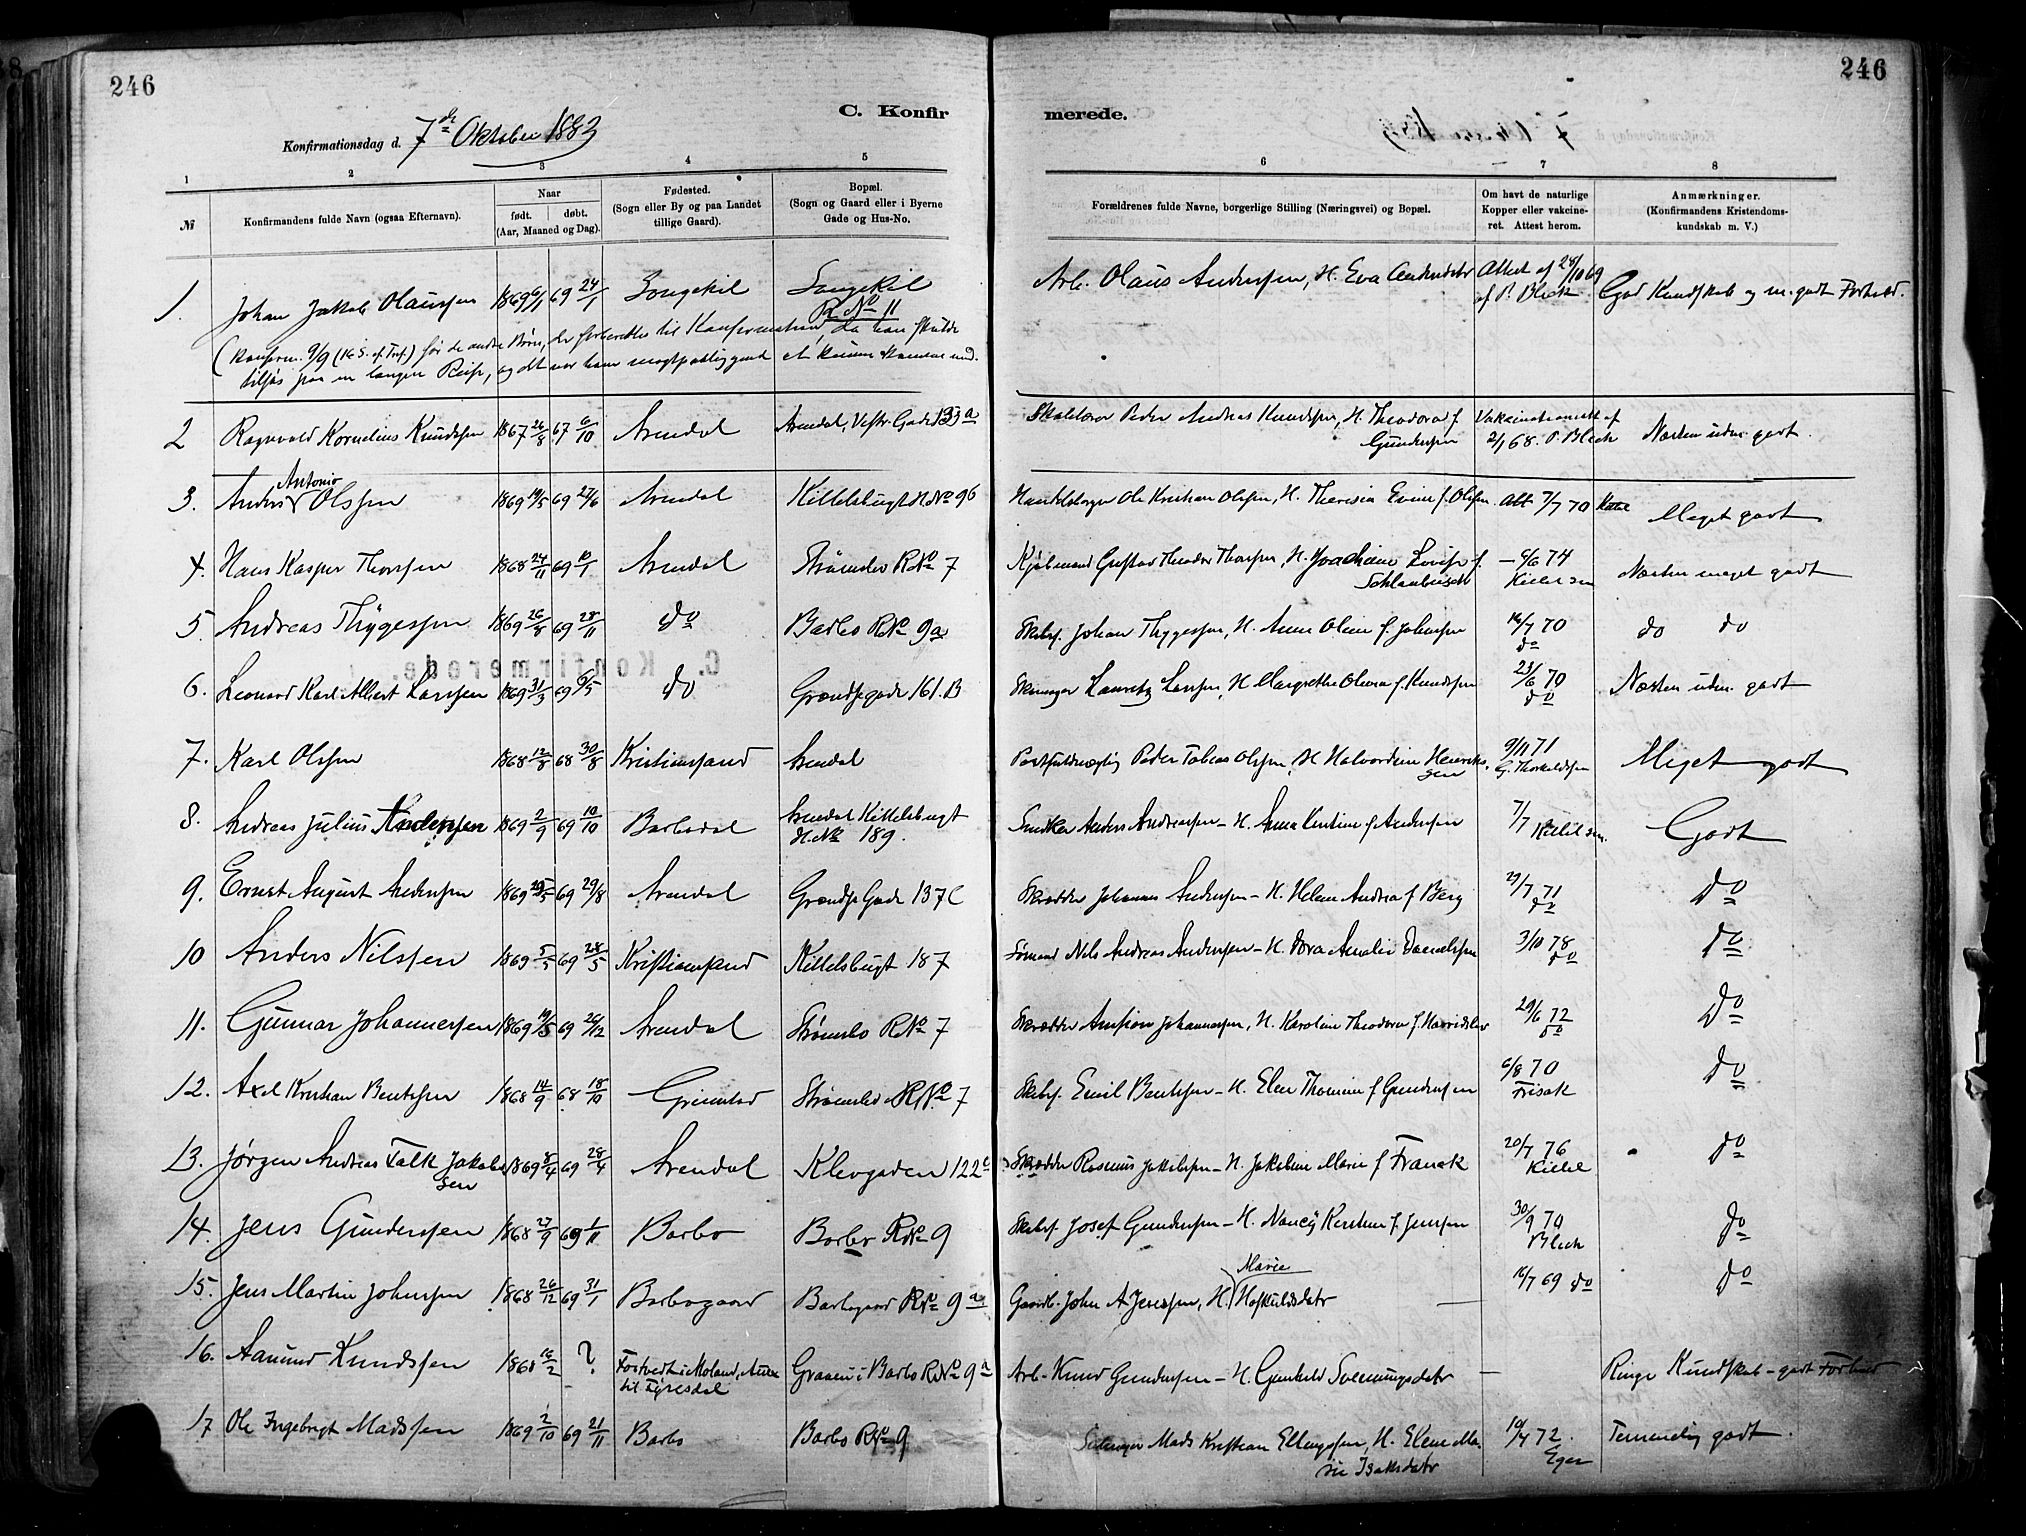 246
246
C. Konfir
merede.
Konfirmationsdag d. 7de Oktober 1883
1 2 3 4 5 6 7 8
№
Konfirmandens fulde Navn (ogsaa Efternavn).
Naar
født. døbt.
(Aar, Maaned og Dag).
Fødested.
(Sogn eller By og paa Landet
tillige Gaard).
Bopæl.
(Sogn og Gaard eller i Byerne
Gade og Hus-No.
Forældrenes fulde Navne, borgerlige Stilling (Næringsvei) og Bopæl.
Om havt de naturlige
Kopper eller vakcine-
ret. Attest herom.
Anmærkninger.
(Konfirmandens Kristendoms-
kundskab m. V.)
1. Johan Jakob Olaussen 1869 6/1 69 24/1 Songekil Songekil R No 11 Arb. Olaus Anderssen, H. Eva Andersdatr Attest af 28/10 69 af P. Bleck God Kundskab og m. godt Forhold.
(Konfirm. 9/9 før de andre Børn, da han skulde
tilsjøs paa en langere Reise, og det var ham
2 Ragnvald Kornelius Knudssen 1867 26/8 67 6/10 Arendal Arendal, Vestr. Gade 133a Skolelærer Peder Andreas Knudssen, H. Theodora f. Gunderssen Vakcinationsatt. af 2/1 68. P. Bleck Næsten udm. godt.
3. Anders Antonio Olssen 1869 19/5 69 27/6 Arendal Kittelsbugt H.No 96 Handelsborger Ole Kristian Olssen, H. Theresia f. Olssen. Att. 7/7 70 Kittel Meget godt
4. Hans Kasper Thorssen 1868 24/11 69 10/1 Arendal Strømsbo R.No 7 Kjøbmand Gustav Theodor Thorssen, H. Joachime Lovise f. — 6/6 74 Kittel sen Næsten meget godt
5. Andreas Thygessen 1869 26/8 69 28/11 do Barbo R.No 9a Skibsf. Johan Thygessen, H. Anne Oline f. Johnssen 16/7 70 do do do
6. Leonard Karl Albert Larssen 1869 31/3 69 6/5 do Grændsegade 161.B Lauritz Larssen, H. Margrethe Olivia f. Knudssen 23/6 70 do Næsten udm. godt
7. Karl Olssen 1868 12/8 68 30/8 Kristianssand Arendal Postfuldmægtig Peder Tobias Olssen, H. Halvordine Henrikssen 9/11 71 G. Thorkildssen Meget godt
8. Andreas Julius Anderssen 1869 2/9 69 10/10 Barbodal Arendal Kittelsbugt H.No 189. Snedker Anders Andreassen — H. Anna f. Anderssen 7/7 Kittel sen. Godt
9. Ernst August Anderssen 1869 69 29/8 Arendal Grændse Gade 137C Skrædder Johannes Anderssen — H. Helene Andrea f. Berg 29/7 71 do do
10 Anders Nilssen 1869 5/5 69 28/5 Kristianssand Kittelsbugt 187 Sømand Nils Andreas Anderssen — H. Dora Amalie Danielssen 3/10 78 do do
11. Gunnar Johannessen 1869 19/5 69 26/12 Arendal Strømsbo R.No 7 Skrædder Johannessen, H. Karoline Theodora f. 29/6 72 do do
12. Axel Kristian Bentssen 1868 14/9 68 18/10 Grimstad Strømsbo R.No 7 Skibsf. Emil Bentssen — H. Elen Thomine f Gunderssen 6/8 70 Frisak do
13. Jørgen Andreas Falk Jakobssen 1869 8/4 69 28/4 Arendal Klevgaden 122c Skrædder Rasmus Jakobssen — H. Jakobine Marie f Franck 20/7 76 Kittel do
14. Jens Gunderssen 1868 27/9 69 1/11 Barbo Barbo R.No 9 Skibsf. Josef Gunderssen — H. Nancy Kirstine f. Jenssen 30/9 70 Bleck do
15. Jens Martin Johnssen 1868 26/12 69 31/1 Barbogaard Barbogaard R.No 9 a Gaardb. John A. Jenssen, H. Marie Hofkuldsdatr — 16/7 69 do do
16. Aamund Knudssen 1868 16/2 ? i Moland, Annex til Fyresdal Graaen i Barbo R.No 9a Arb. Knud Gunderssen — H. Gunhild Sveinungsdatr — Ringe Kundskab — godt Forhold
17 Ole Ingebrigt Madssen 1869 2/10 69 21/11 Barbo Barbo R.No 9 Mads Kristian Ellingssen, H. Elene Marie Isaksdatr 10/7 72. Eger Temmelig godt.
C. Konfirmerede.